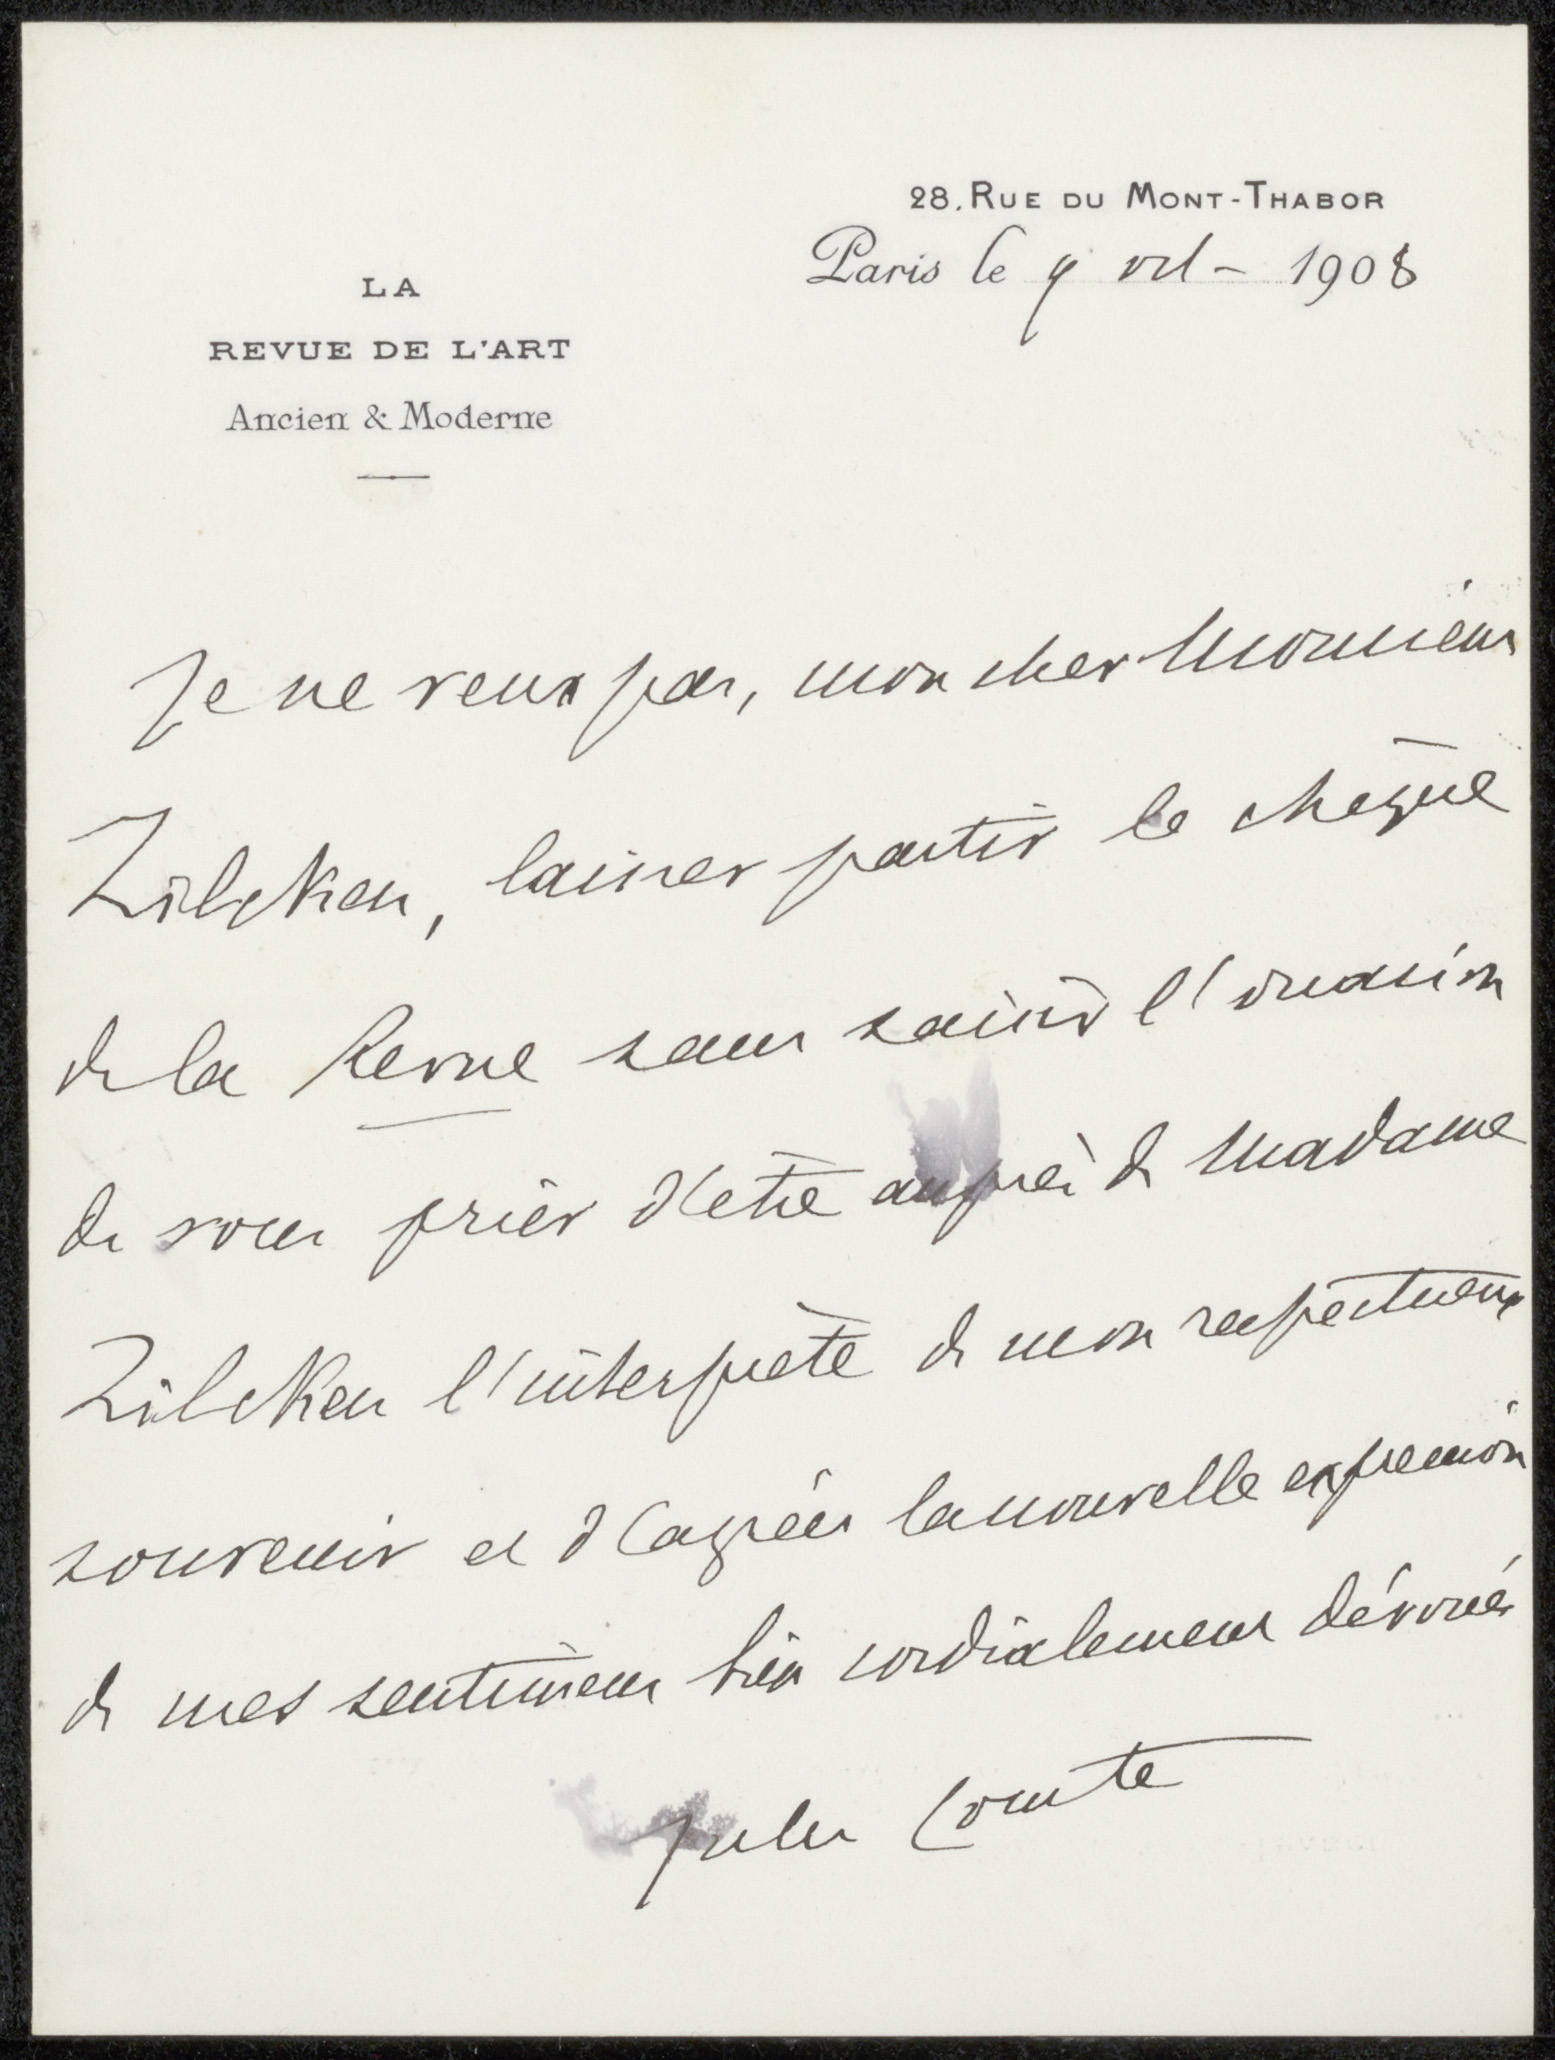 28. RUE DU MONT-THABOR
Paris le 9 oct - 1908
LA
REVUE DE L'ART
Ancien & Moderne
Je ne veux pas, mon cher Monsieur
Zilcken, laisser partir le chèque
de la Revue sans saisir l'occasion
de vous prier d'être auprès de Madame
Zilcken l'interprète de mon respectueux
souvenir et d'agréer la nouvelle expression
de mes sentiments bien cordialement dévoués
Jules Comte